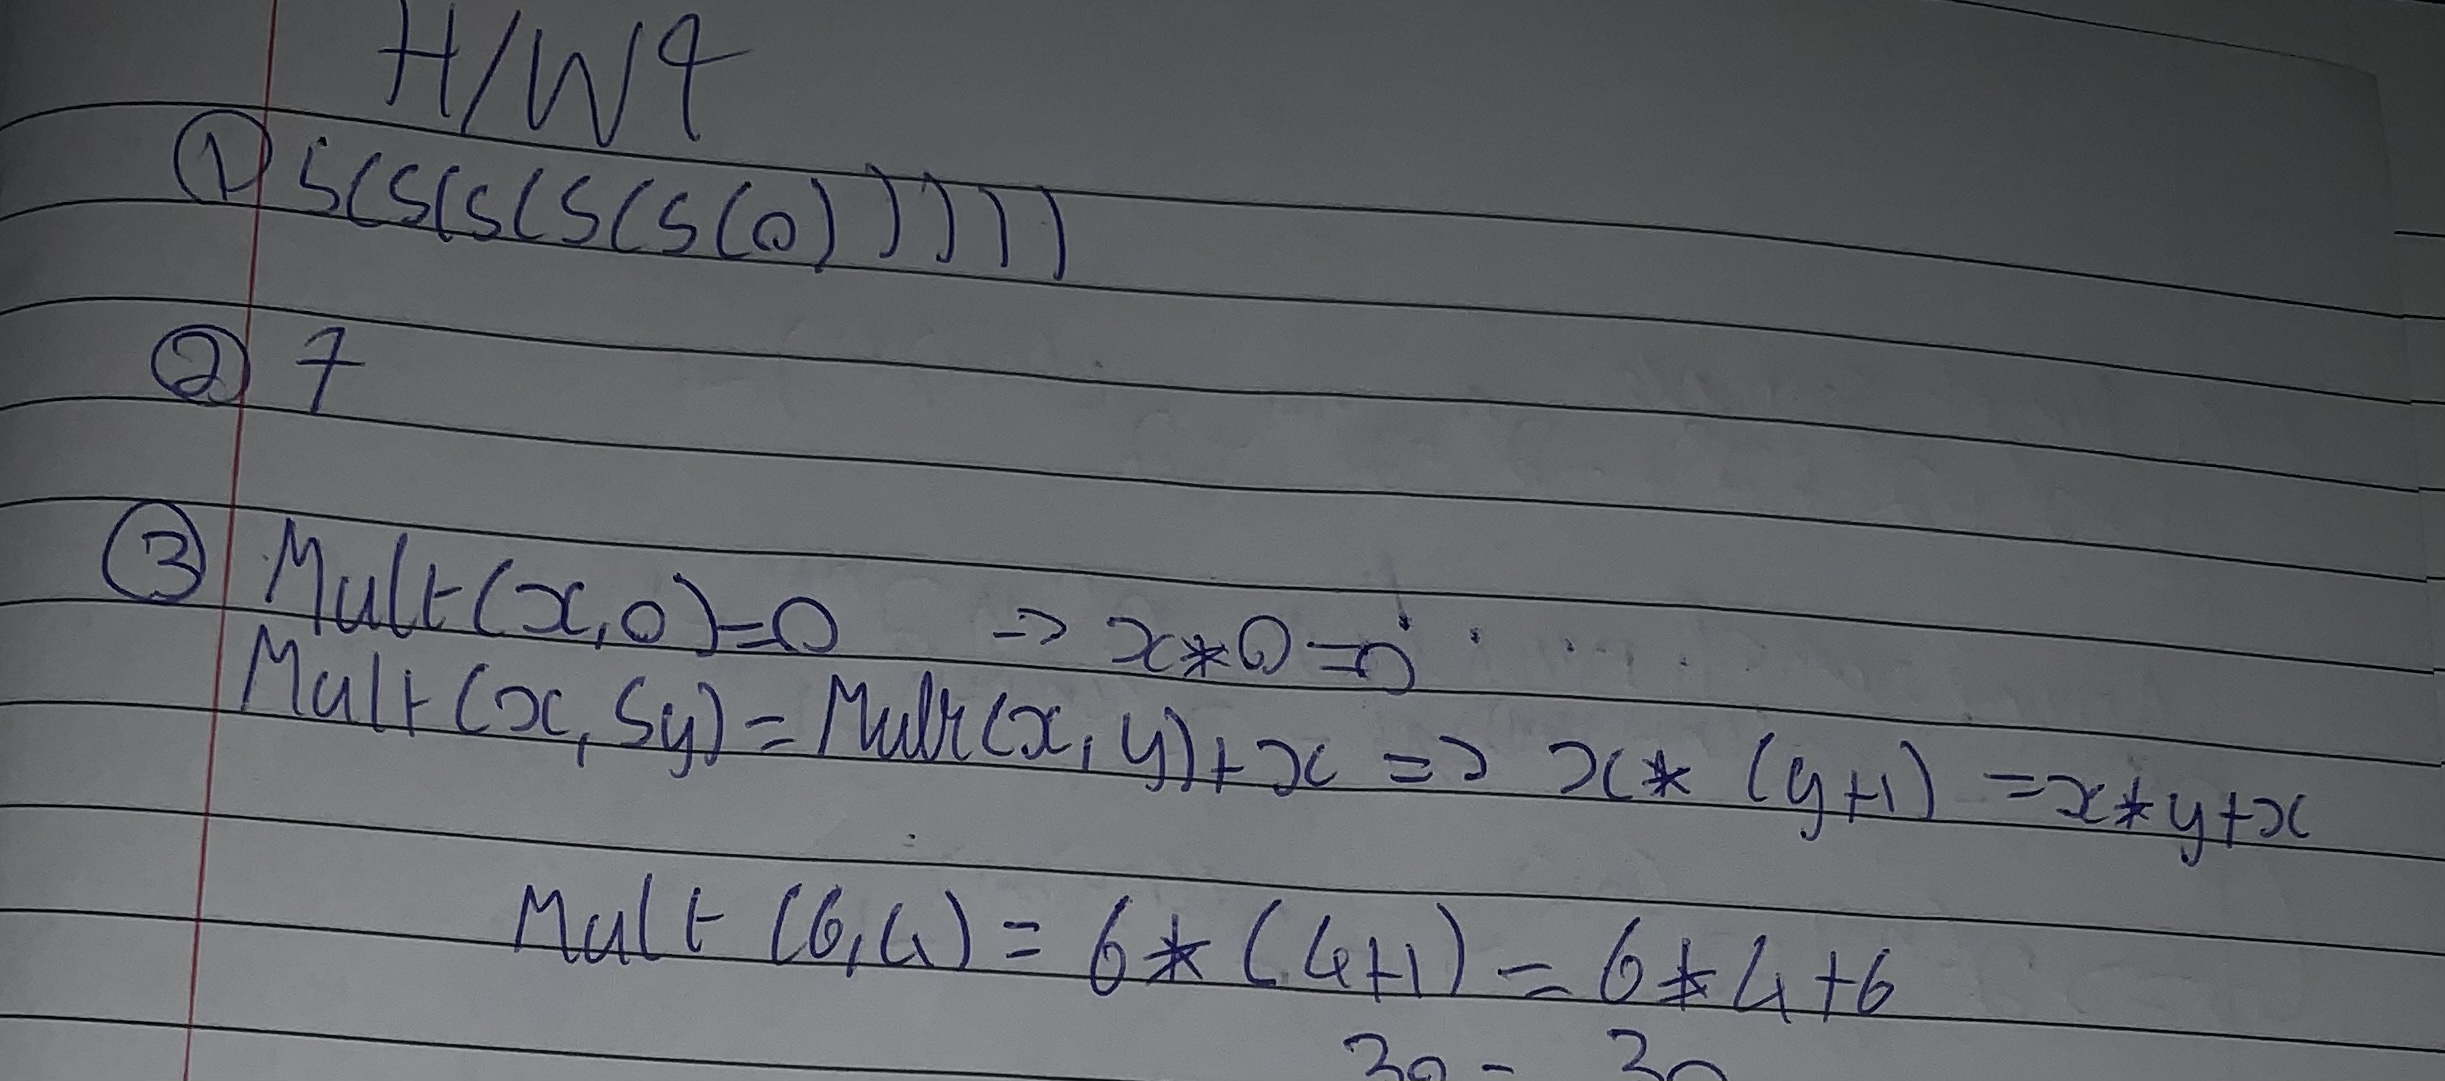 H/W 9
① S(S(S(S(S(S(0))))))
② 7
③ Mult(x,0)=0 => x*0=0
Mult(x, Sy) = Mult(x, y)+x => x* (y+1) = x*y+x
Mult (6,4) = 6* (4+1) = 6*4+6
30 = 30